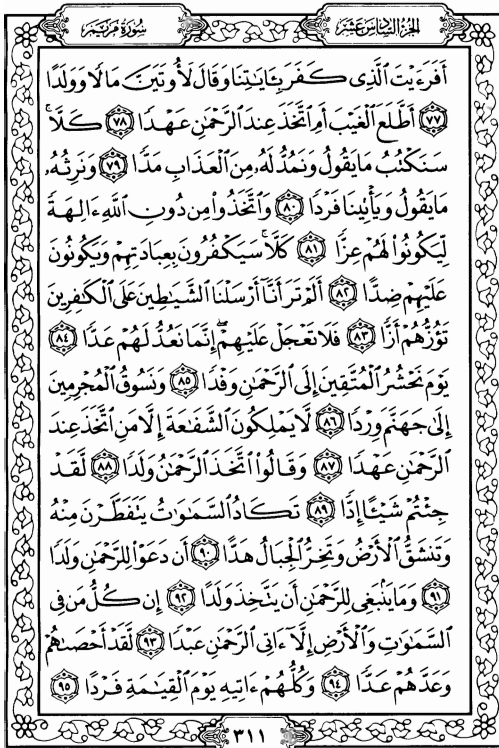 سُورَةُ مَرْيَمَ
الجزء السادس عشر
أَفَرَءَيْتَ ٱلَّذِى كَفَرَ بِـَٔايَـٰتِنَا وَقَالَ لَأُوتَيَنَّ مَالًا وَوَلَدًا
٧٧ أَطَّلَعَ ٱلْغَيْبَ أَمِ ٱتَّخَذَ عِندَ ٱلرَّحْمَـٰنِ عَهْدًا ٧٨ كَلَّا ۚ
سَنَكْتُبُ مَا يَقُولُ وَنَمُدُّ لَهُۥ مِنَ ٱلْعَذَابِ مَدًّا ٧٩ وَنَرِثُهُۥ
مَا يَقُولُ وَيَأْتِينَا فَرْدًا ٨٠ وَٱتَّخَذُوا۟ مِن دُونِ ٱللَّهِ ءَالِهَةً
لِّيَكُونُوا۟ لَهُمْ عِزًّا ٨١ كَلَّا ۚ سَيَكْفُرُونَ بِعِبَادَتِهِمْ وَيَكُونُونَ
عَلَيْهِمْ ضِدًّا ٨٢ أَلَمْ تَرَ أَنَّآ أَرْسَلْنَا ٱلشَّيَـٰطِينَ عَلَى ٱلْكَـٰفِرِينَ
تَؤُزُّهُمْ أَزًّا ٨٣ فَلَا تَعْجَلْ عَلَيْهِمْ ۖ إِنَّمَا نَعُدُّ لَهُمْ عَدًّا ٨٤
يَوْمَ نَحْشُرُ ٱلْمُتَّقِينَ إِلَى ٱلرَّحْمَـٰنِ وَفْدًا ٨٥ وَنَسُوقُ ٱلْمُجْرِمِينَ
إِلَىٰ جَهَنَّمَ وِرْدًا ٨٦ لَّا يَمْلِكُونَ ٱلشَّفَـٰعَةَ إِلَّا مَنِ ٱتَّخَذَ عِندَ
ٱلرَّحْمَـٰنِ عَهْدًا ٨٧ وَقَالُوا۟ ٱتَّخَذَ ٱلرَّحْمَـٰنُ وَلَدًا ٨٨ لَّقَدْ
جِئْتُمْ شَيْـًٔا إِدًّا ٨٩ تَكَادُ ٱلسَّمَـٰوَٰتُ يَتَفَطَّرْنَ مِنْهُ
وَتَنشَقُّ ٱلْأَرْضُ وَتَخِرُّ ٱلْجِبَالُ هَدًّا ٩٠ أَن دَعَوْا۟ لِلرَّحْمَـٰنِ وَلَدًا
٩١ وَمَا يَنۢبَغِى لِلرَّحْمَـٰنِ أَن يَتَّخِذَ وَلَدًا ٩٢ إِن كُلُّ مَن فِى
ٱلسَّمَـٰوَٰتِ وَٱلْأَرْضِ إِلَّآ ءَاتِى ٱلرَّحْمَـٰنِ عَبْدًا ٩٣ لَّقَدْ أَحْصَىٰهُمْ
وَعَدَّهُمْ عَدًّا ٩٤ وَكُلُّهُمْ ءَاتِيهِ يَوْمَ ٱلْقِيَـٰمَةِ فَرْدًا ٩٥
٣١١